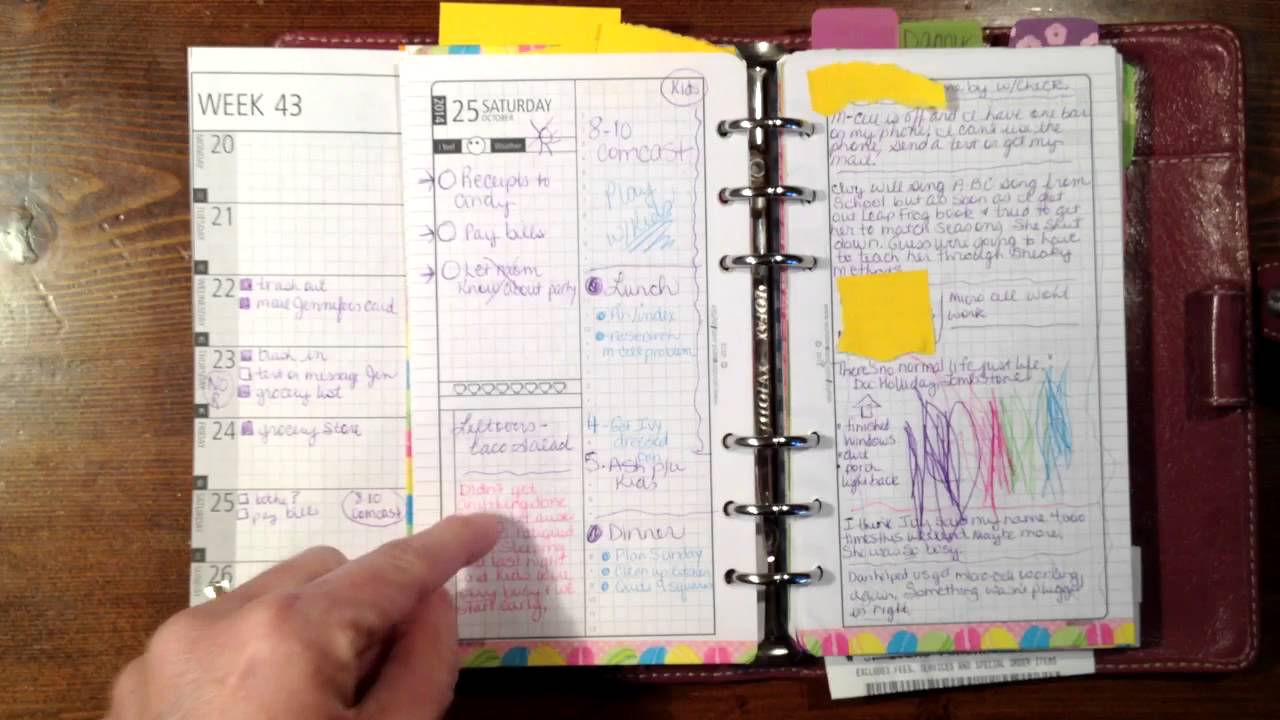 WEEK 43
MONDAY
20
TUESDAY
21
WEDNESDAY
22
trash out
mail Jennifers card
THURSDAY
23
trash in
text or message Jen
grocery list
FRIDAY
24
grocery Store
SATURDAY
25
pay bills
8-10
Comcast
26
2014
25 SATURDAY
OCTOBER
I feel
Weather
Receipts to
andy
Pay bills
Let mom
know about party
Leftovers -
taco salad
Didn't get
anything done
fatigued
sleeping
last night
and kids
very busy & we
start early.
Kids
8-10
comcast
Play
w/kids
Lunch
research
problem
4 - Get Ivy
dressed
5. Ash p/u
Kids
Dinner
Plan Sunday
Clean up kitchen
Danny
by w/check
M-cell is off and I have one bar
on my phone, I can't use the
phone, send a text or get my
mail.
Ivy will sing A.B.C song from
School but as soon as I got
out Leap Frog book & tried to get
her to match Seasong She Shut
down. Guess we're going to have
to teach her through Sneaky
methods
Micro cell wont
work
"There's no normal life, just life."
Doc Holliday, Tombstone
finished
windows
porch
light back
I think Ivy said my name 4000
times this weekend maybe more.
She was so busy.
Dan helped us get micro-cell working
again. Something wasn't plugged
in right.
FILOFAX
EXCLUDES FEES, SERVICES AND SPECIAL ORDER ITEMS